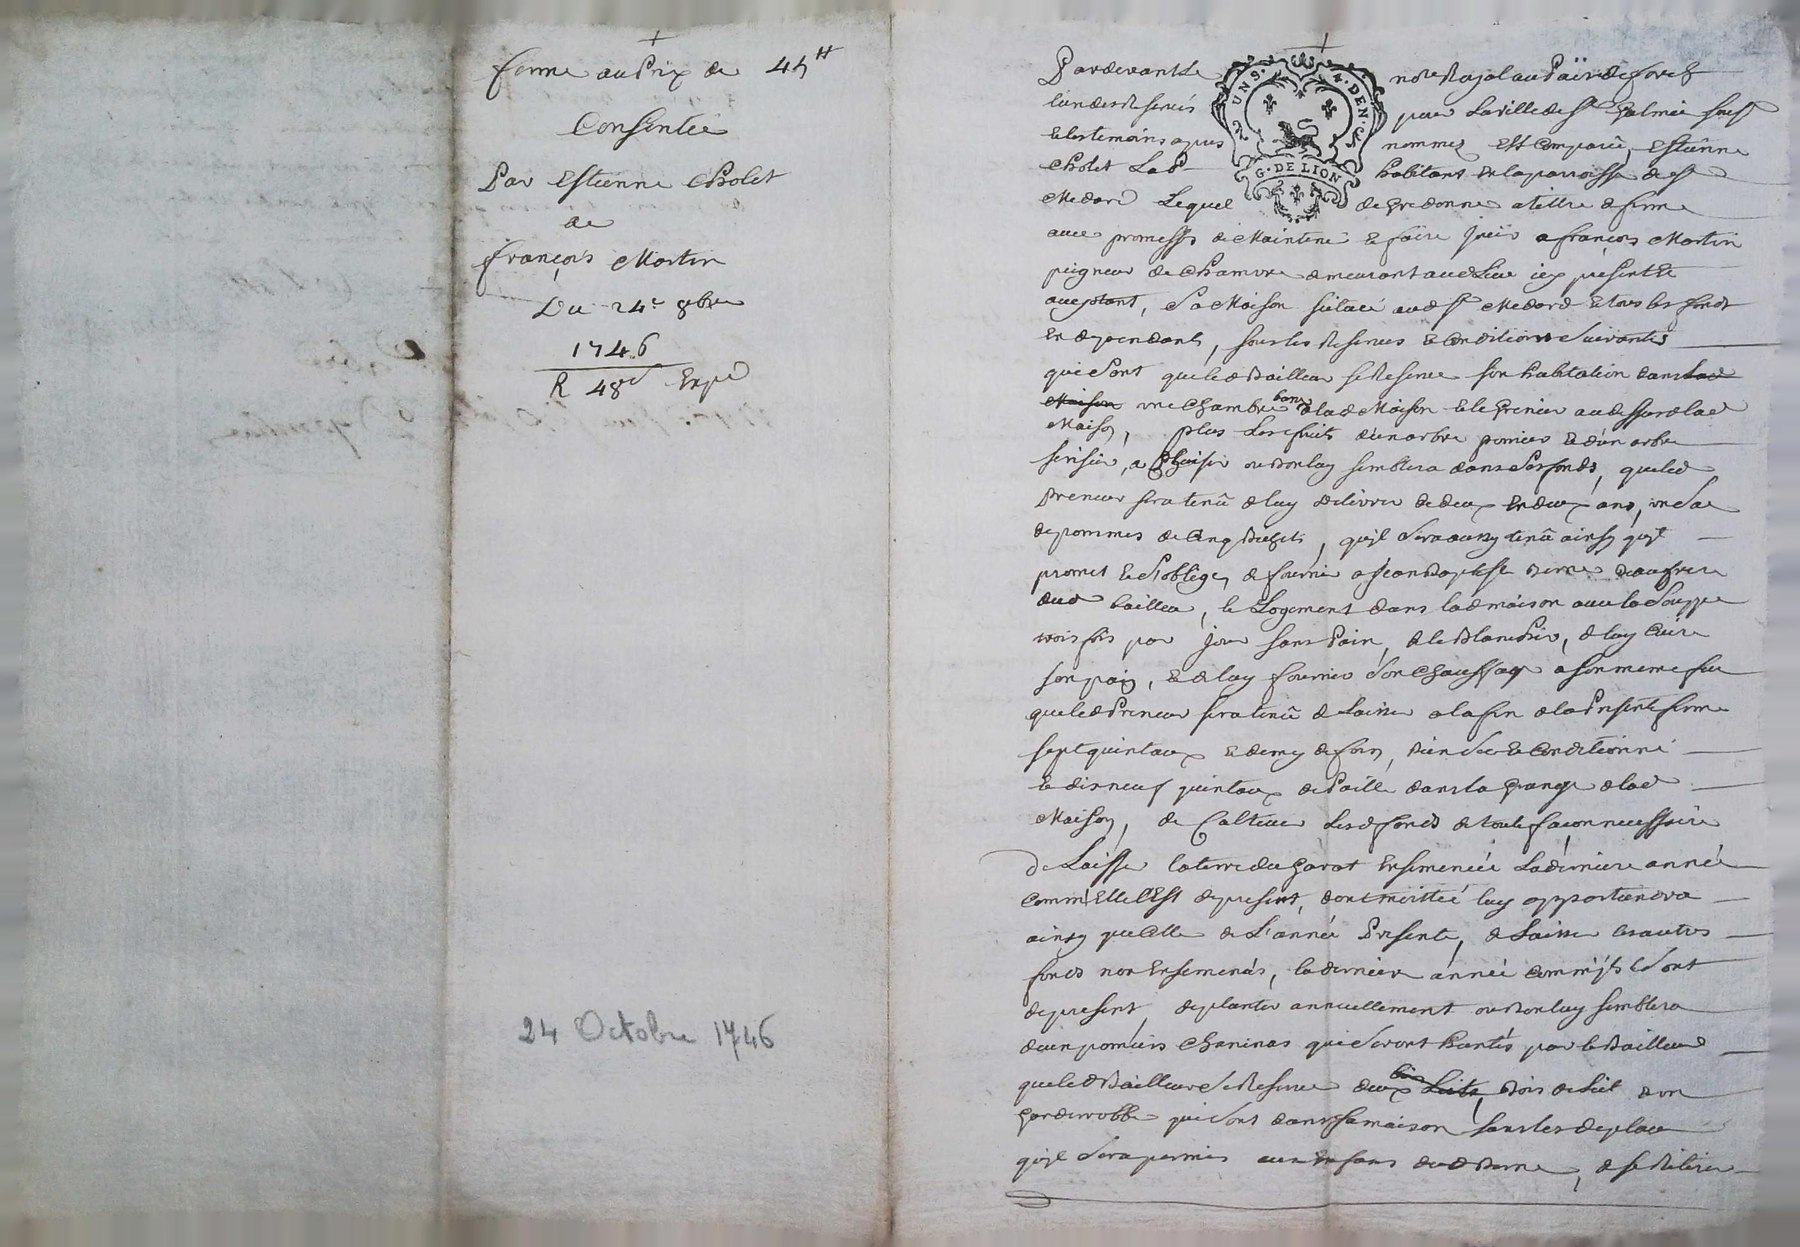 ferme au Prix de 45ᴴ
Consentie
Par Estienne Cholet
a
françois Martin
Du 24e 8bre
1746
R 48 Expé
24 Octobre 1746
Pardevant Le nore Royal au Païs de forets
l'un des Reservés pour La ville de st Galmier souss
et les temoins apres nommes Est Comparu, Estienne
Cholet Lab habitant de la parroisse de st
Medard Lequel de gre donne a tittre de ferme
avec promesse de Maintenir & faire jouir a françois Martin
peigneur de Chanvre demeurant aud Lieu icy present &
acceptant, Sa Maison situeé aud st Medard & tous les fonds
En dependants, sous les Reserves & Conditions Suivantes
qui Sont que led Bailleur se Reserve son habitation dans lad
Maison une Chambre dans lad Maison & le Grenier au dessus de lad
Maison, plus Les fruits d'un arbre pomier & d'un arbre
serisier, a Choisir ou Bon luy semblera dans Ses fonds, que led
Preneur sera tenû de luy delivrer de deux En deux ans, un Sac
de pommes de Cinq Bichets, qu'jl Sera aussy tenû ainsy qu'jl
promet & S'oblige, de fournir a Jean Baptiste Berne Beaufrere
dud bailleur, le Logement dans lad maison avec la Souppe
trois fois par jour sans Pain, de le Blanchir, de luy Cuire
son pain, & de luy fournir Son Chauffage a son meme feu
que led Preneur sera tenû de Laisser a la fin de la Presente ferme
sept quintaux & demy de foin, Bien Sec & Conditionné
& dixneuf quintaux de Paille dans la Grange de lad
Maison, de Cultiver Lesd fonds de toute façon necessaire
de Laisser la terre du Garat Ensemencée La derniere année
comm'Elle l'Est de present, dont moittié luy appartiendra
ainsy que Celle de L'année Presente, de Laisser les autres
fonds non Ensemencés, la derniere année comm'jls Sont
de present, de planter annuellement ou Bon luy semblera
deux pomiers qui Seront hantés par le Bailleur
que led Bailleur Se Reserve deux Lits, Bois de Lict & un
garderobbe qui Sont dans sa maison sans les deplacer
qu'jl Sera permis aux Enfans dud Berne, de se Retirer
UN S. 4. DEN.
G. DE LION